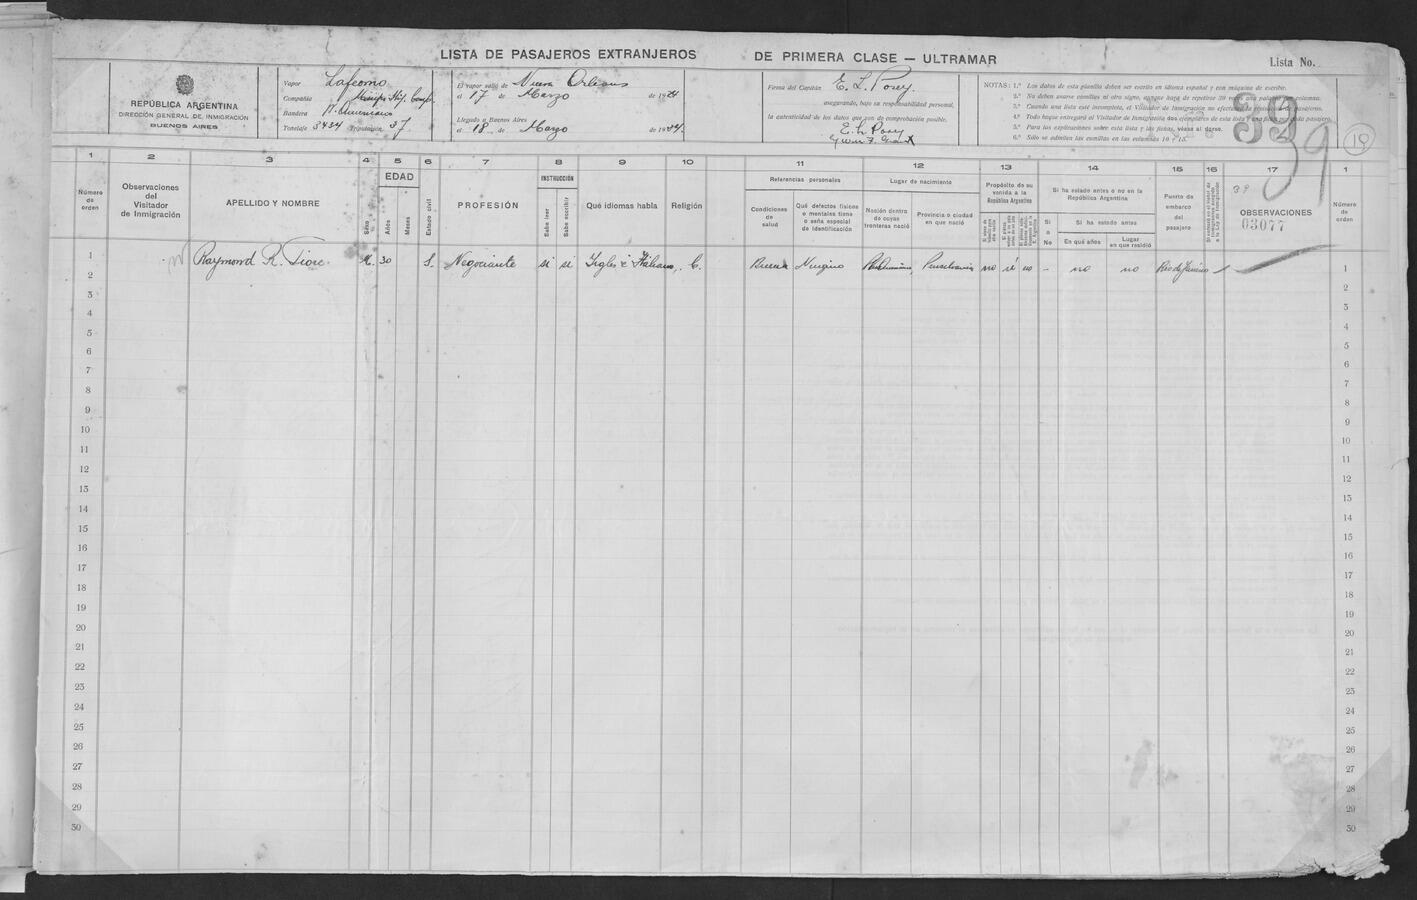 LISTA DE PASAJEROS EXTRANJEROS DE PRIMERA CLASE — ULTRAMAR
Lista No.
REPÚBLICA ARGENTINA
DIRECCIÓN GENERAL DE INMIGRACIÓN
BUENOS AIRES
Vapor Lafcomo
Compañía
Bandera N. Americano
Tonelaje 3434 Tripulación 37
El vapor salió de Nueva Orleans
el 17 de Marzo de 1924
Llegado a Buenos Aires
el 18 de Marzo de 1924
Firma del Capitán E. L. Posey
asegurando, bajo su responsabilidad personal,
la autenticidad de los datos que son de comprobación posible.
E. L. Posey
NOTAS: 1.ª Los datos de esta planilla deben ser escritos en idioma español y con máquina de escribir.
2.ª No deben usarse comillas ni otro signo, aunque haya de repetirse 30 veces una palabra en columna.
3.ª Cuando una lista esté incompleta, el Visitador de Inmigración no efectuará de pasajeros.
4.ª Todo buque entregará al Visitador de Inmigración dos ejemplares de esta lista y una ficha por cada pasajero.
5.ª Para las explicaciones sobre esta lista y las fichas, véase al dorso.
6.ª Sólo se admiten las comillas en las columnas 10 y 15.
39
19
1 2 3 4 5 6 7 8 9 10 11 12 13 14 15 16 17 1
Número de orden
Observaciones del Visitador de Inmigración
APELLIDO Y NOMBRE
Sexo
EDAD
Años
Meses
Estado civil
PROFESIÓN
INSTRUCCIÓN
Sabe leer
Sabe escribir
Qué idiomas habla
Religión
Referencias personales
Condiciones de salud
Qué defectos físicos o mentales tiene o seña especial de identificación
Lugar de nacimiento
Nación dentro de cuyas fronteras nació
Provincia o ciudad en que nació
Propósito de su venida a la República Argentina
Si ha estado antes o no en la República Argentina
Si o No
Si ha estado antes
En qué años
Lugar en que residió
Puerto de embarco del pasajero
39
OBSERVACIONES
03077
Número de orden
1 Raymond R. Fiore M. 30 S. Negociante si si Ingles é Italiano C. Buena Ninguno Pensilvania no si no – no no Rio de Janeiro 1
2 2
3 3
4 4
5 5
6 6
7 7
8 8
9 9
10 10
11 11
12 12
13 13
14 14
15 15
16 16
17 17
18 18
19 19
20 20
21 21
22 22
23 23
24 24
25 25
26 26
27 27
28 28
29 29
30 30